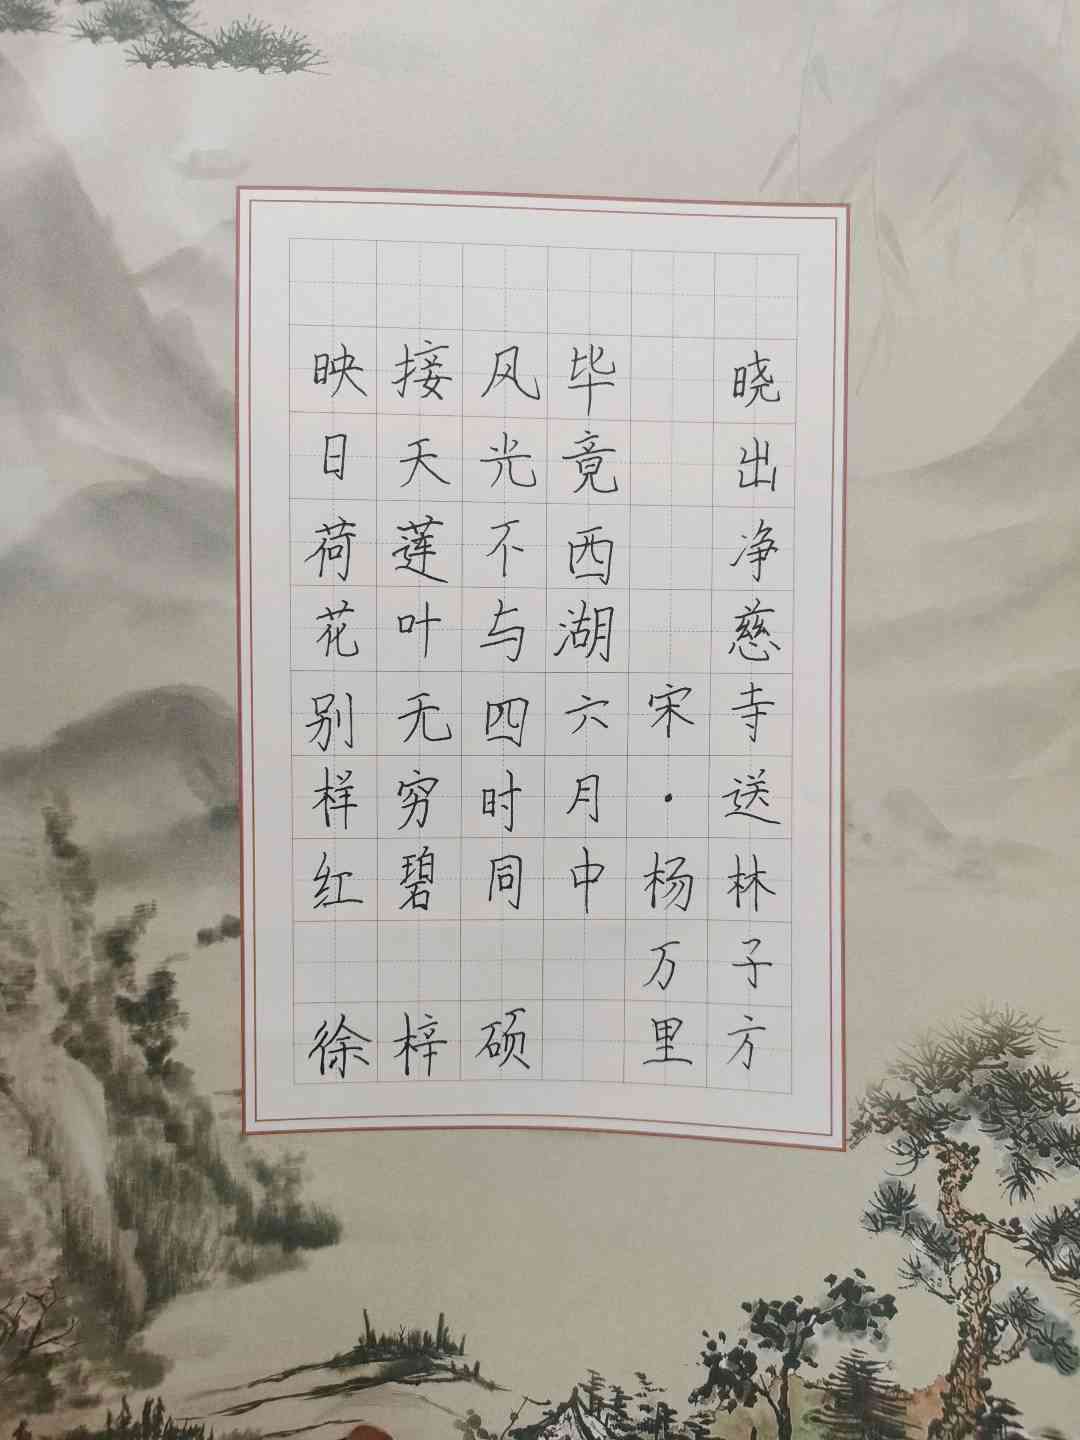 晓出净慈寺送林子方
宋·杨万里
毕竟西湖六月中
风光不与四时同
接天莲叶无穷碧
映日荷花别样红
硕
梓
徐